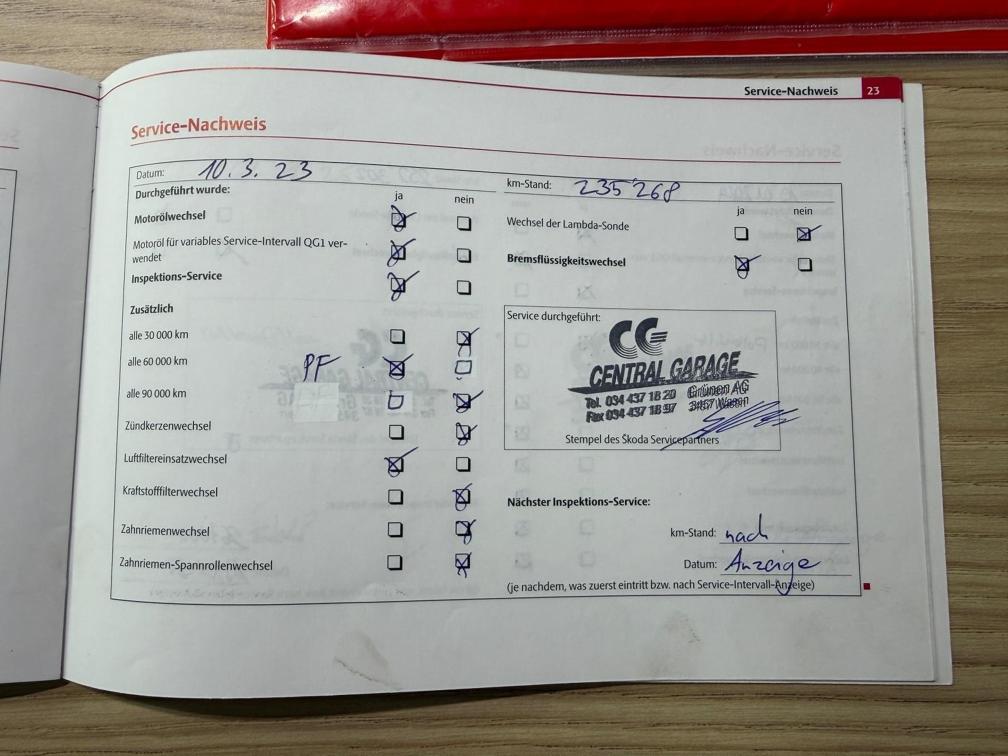 Service-Nachweis 23
Service-Nachweis
Datum: 10. 3. 23
Durchgeführt wurde:
ja nein
Motorölwechsel
Motoröl für variables Service-Intervall QG1 ver-
wendet
Inspektions-Service
Zusätzlich
alle 30 000 km
alle 60 000 km PF
alle 90 000 km
Zündkerzenwechsel
Luftfiltereinsatzwechsel
Kraftstofffilterwechsel
Zahnriemenwechsel
Zahnriemen-Spannrollenwechsel
km-Stand: 235'268
ja nein
Wechsel der Lambda-Sonde
Bremsflüssigkeitswechsel
Service durchgeführt:
CG
CENTRAL GARAGE
Tel. 034 437 18 20 Grünen AG
Fax 034 437 18 97 3457 Wasen
Stempel des Škoda Servicepartners
Nächster Inspektions-Service:
km-Stand: nach
Datum: Anzeige
(je nachdem, was zuerst eintritt bzw. nach Service-Intervall-Anzeige)